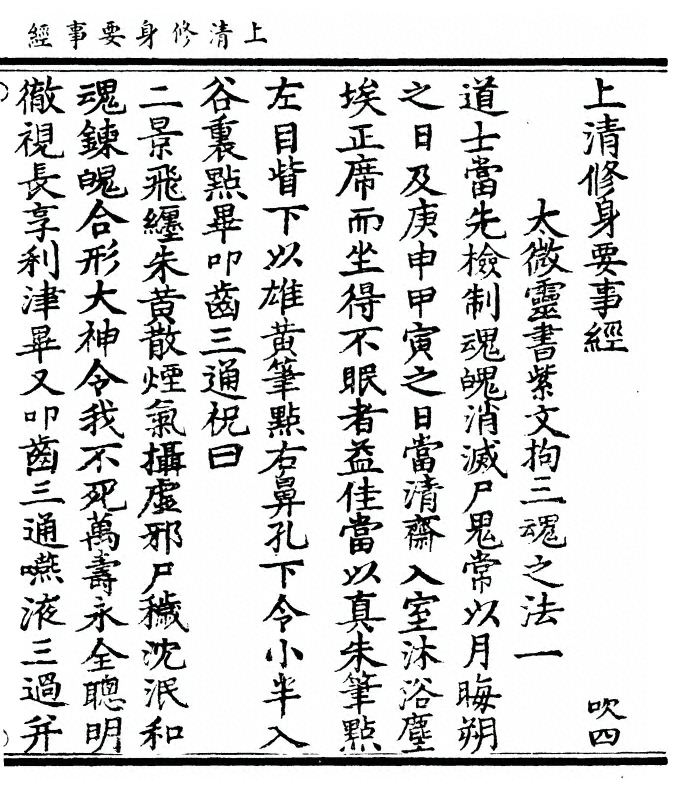 上清修身要事經
上清修身要事經
吹四
太微靈書紫文拘三魂之法一
道士當先檢制魂魄消滅尸鬼常以月晦朔
之日及庚申甲寅之日當清齋入室沐浴塵
埃正席而坐得不眠者益佳當以真朱筆點
左目眥下以雄黃筆點右鼻孔下令小半入
谷裏點畢叩齒三通祝曰
二景飛纏朱黃散煙氣攝虛邪尸穢沈泯和
魂鍊魄合形大神令我不死萬壽永全聰明
徹視長享利津畢又叩齒三通嚥液三過并